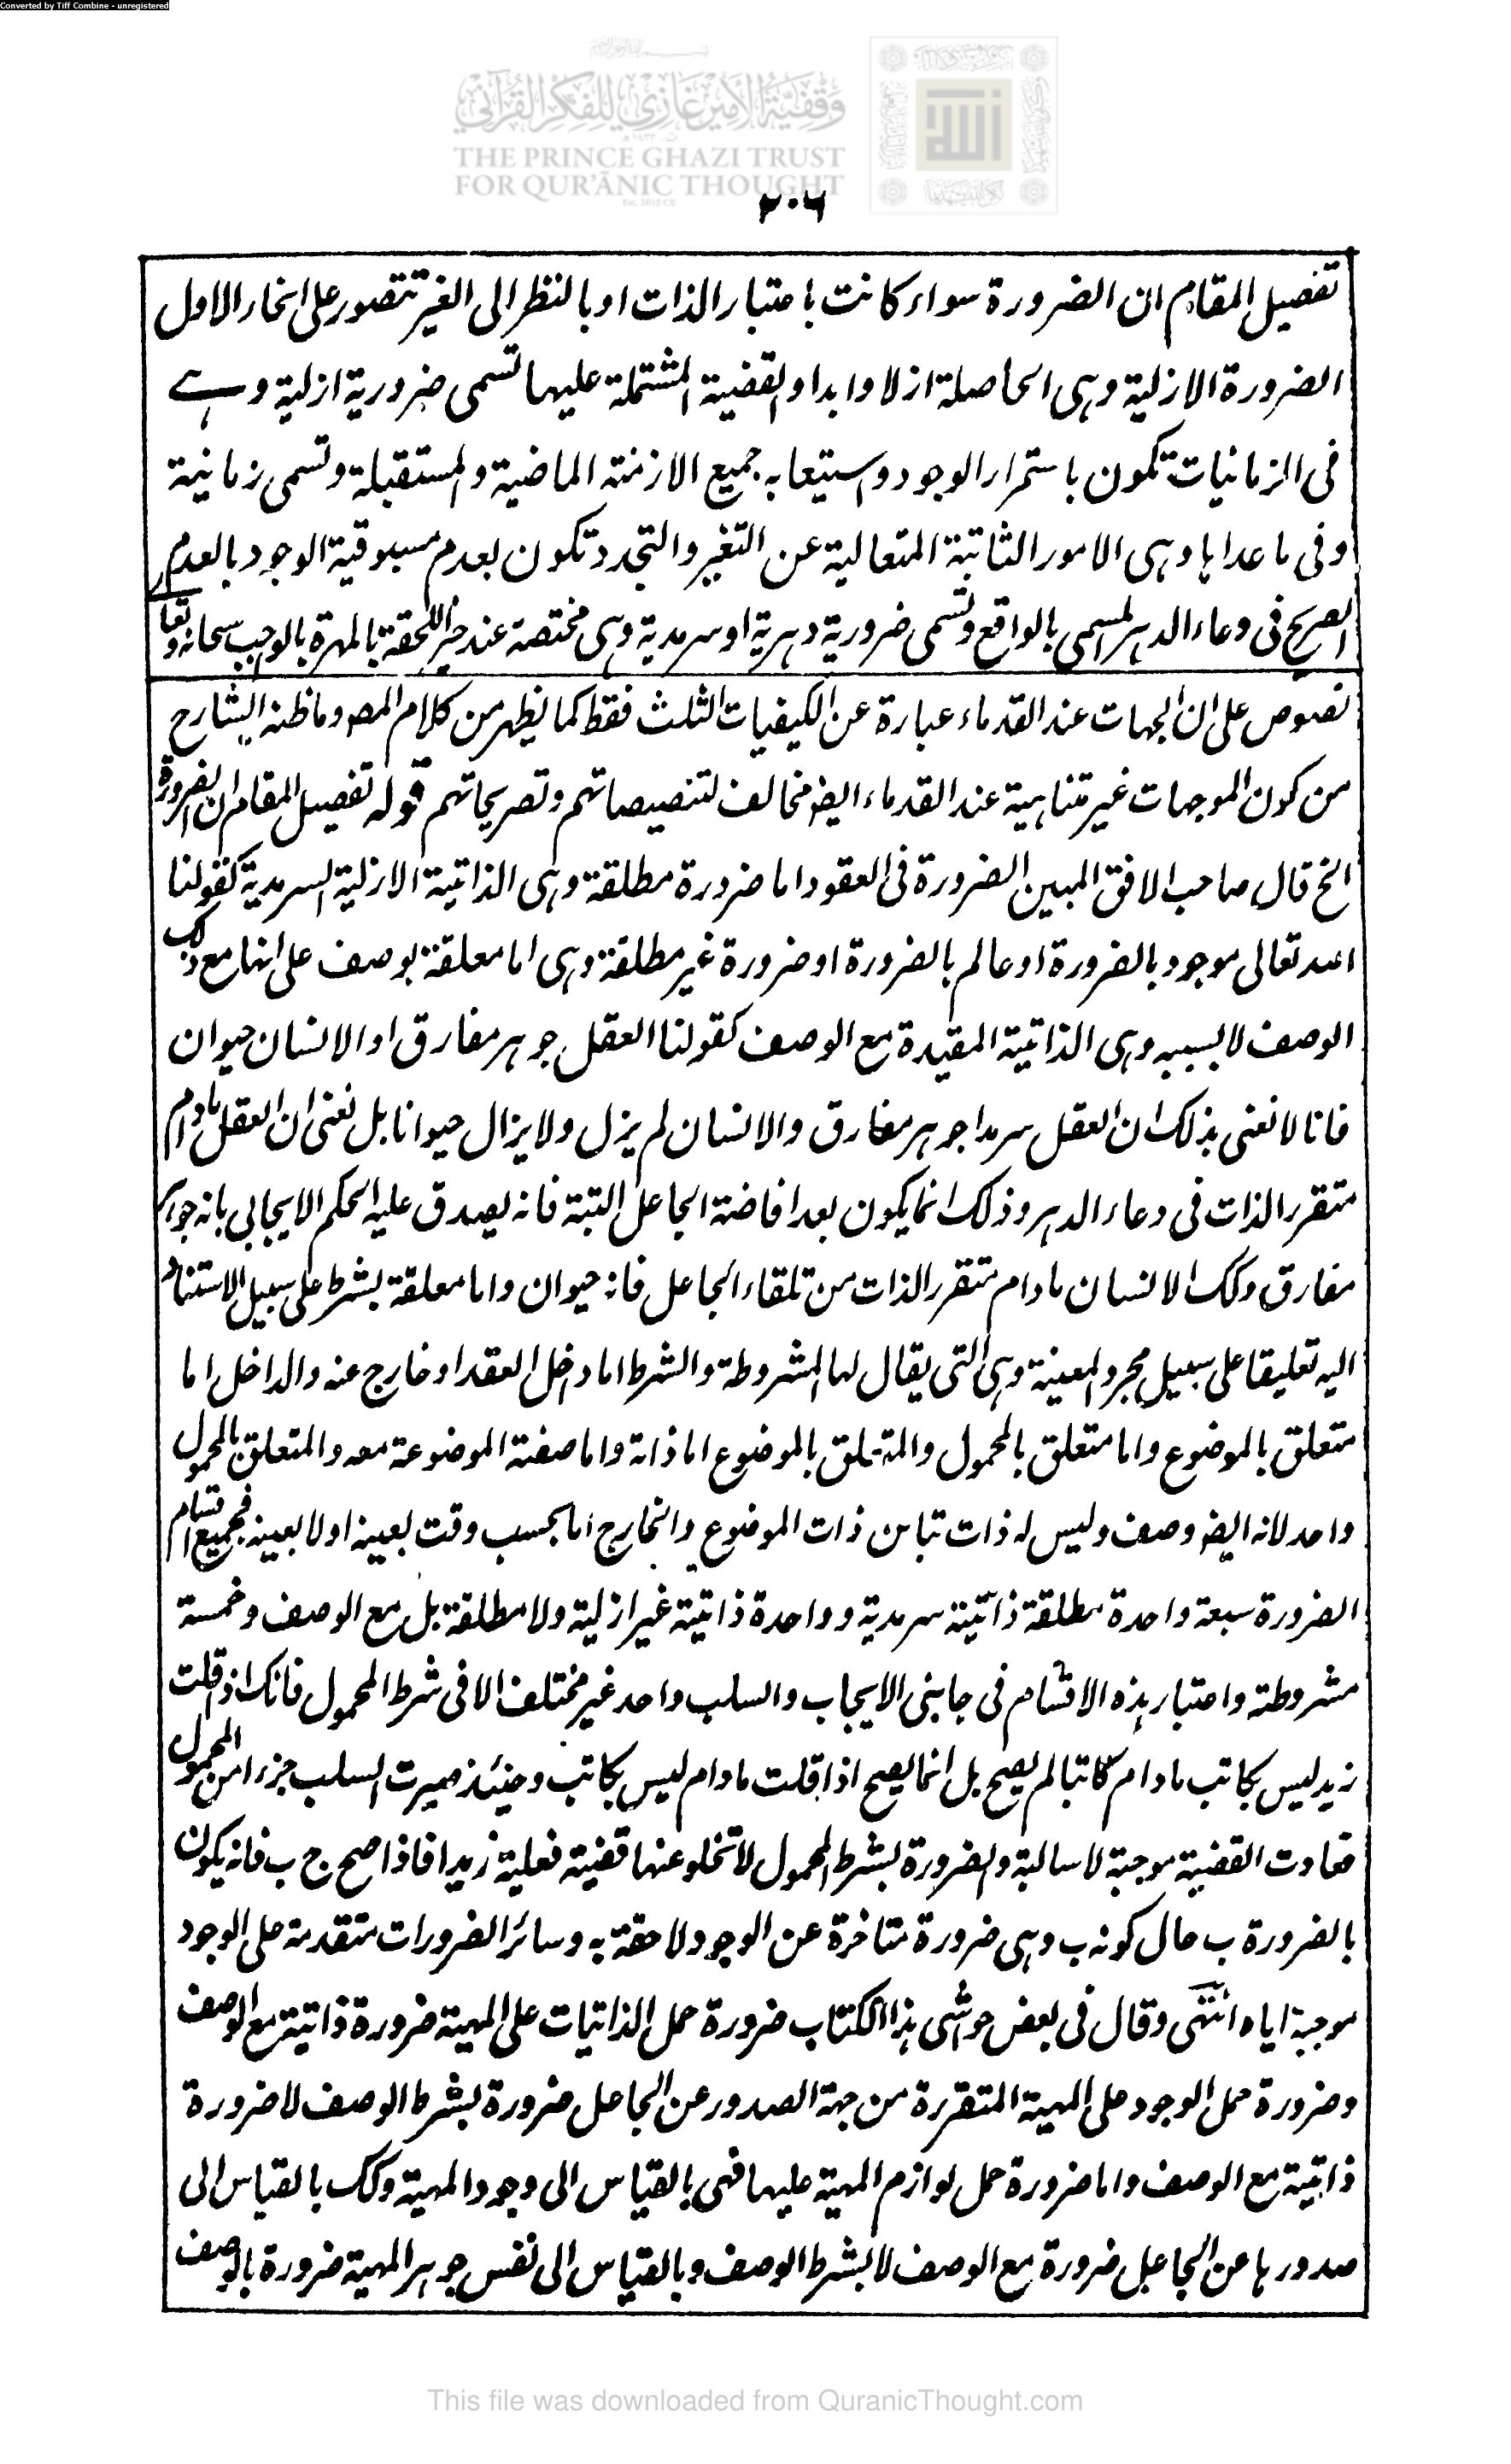 Converted by Tiff Combine - unregistered
وقفية الأمير غازي للفكر القرآني
THE PRINCE GHAZI TRUST
FOR QUR'ĀNIC THOUGHT
Est. 2012 CE
٢٠٦
تفصيل المقام ان الضرورة سواء كانت باعتبار الذات او بالنظر الى الغير تتصور على انحاء الاول
الضرورة الازلية وهى الحاصلة ازلا وابدا والقضية المشتملة عليها تسمى ضرورية ازلية وهے
فى الزمانيات تكون باستمرار الوجود واستيعابه جميع الازمنة الماضية والمستقبلة وتسمى زمانية
وفى ما عداها وهى الامور الثابتة المتعالية عن التغير والتجدد تكون بعدم مسبوقية الوجود بالعدم
الصريح فى وعاء الدهر المسمى بالواقع وتسمى ضرورية دهرية او سرمدية وهى مختصة عند خير اللحقة بالمهرة بالواجب سبحانه وتعا
نصوص على ان الجهات عند القدماء عبارة عن الكيفيات الثلث فقط كما يظهر من كلام المصو وما ظنه الشارح
من كون الموجهات غير متناهية عند القدماء ايضا مخالف لتنصيصاتهم وتصريحاتهم قوله تفصيل المقام ان الضرورة
الخ قال صاحب الافق المبين الضرورة فى العقود اما ضرورة مطلقة وهى الذاتية الازلية السرمدية كقولنا
الله تعالى موجود بالضرورة او عالم بالضرورة او ضرورة غير مطلقة وهى اما معلقة بوصف على انها مع ذلك
الوصف لا بسببه وهى الذاتية المقيدة مع الوصف كقولنا العقل جوهر مفارق او الانسان حيوان
فانا لا نعنى بذلك ان العقل سرمدا جوهر مفارق والانسان لم يزل ولا يزال حيوانا بل نعنى ان العقل مادام
متقرر الذات فى دعاء الدهر وذلك انما يكون بعد افاضة الجاعل البتة فانه يصدق عليه الحكم الايجابى بانه جوهر
مفارق وكك الانسان مادام متقرر الذات من تلقاء الجاعل فانه حيوان واما معلقة بشرط على سبيل الاستناد
اليه تعليقا على سبيل مجرد المعية وهى التى يقال لها المشروطة والشرط اما داخل العقد او خارج عنه والداخل اما
متعلق بالموضوع واما متعلق بالمحمول والمتعلق بالموضوع اما ذاته واما صفته الموضوعة معه والمتعلق بالمحمول
واحد لانه ايضا وصف وليس له ذات تباين ذات الموضوع والخارج اما بحسب وقت بعينه او لا بعينه فجميع اقسام
الضرورة سبعة واحدة مطلقة ذاتية سرمدية وواحدة ذاتية غير ازلية ولا مطلقة بل مع الوصف وخمسة
مشروطة واعتبار هذه الاقسام فى جانبى الايجاب والسلب واحد غير مختلف الا فى شرط المحمول فانك اذا قلت
زيد ليس بكاتب مادام كاتبا لم يصح بل انما يصح اذا قلت مادام ليس بكاتب وحينئذ صيرت السلب جزءا من المحمول
فعادت القضية موجبة لا سالبة والضرورة بشرط المحمول لا تخلو عنها قضية فعلية زيد افاذا صح ج ب فانه يكون
بالضرورة ب حال كونه ب وهى ضرورة متاخرة عن الوجود لاحقة به وسائر الضرورات متقدمة على الوجود
موجبة اياه انتهى وقال فى بعض حواشى هذا الكتاب ضرورة حمل الذاتيات على المهية ضرورة ذاتية مع الوصف
وضرورة حمل الوجود على المهية المتقررة من جهة الصدور عن الجاعل ضرورة بشرط الوصف لا ضرورة
ذاتية مع الوصف واما ضرورة حمل لوازم المهية عليها فهى بالقياس الى وجود المهية وكك بالقياس الى
صدورها عن الجاعل ضرورة مع الوصف لا بشرط الوصف وبالقياس الى نفس جوهر المهية ضرورة بالوصف
This file was downloaded from QuranicThought.com